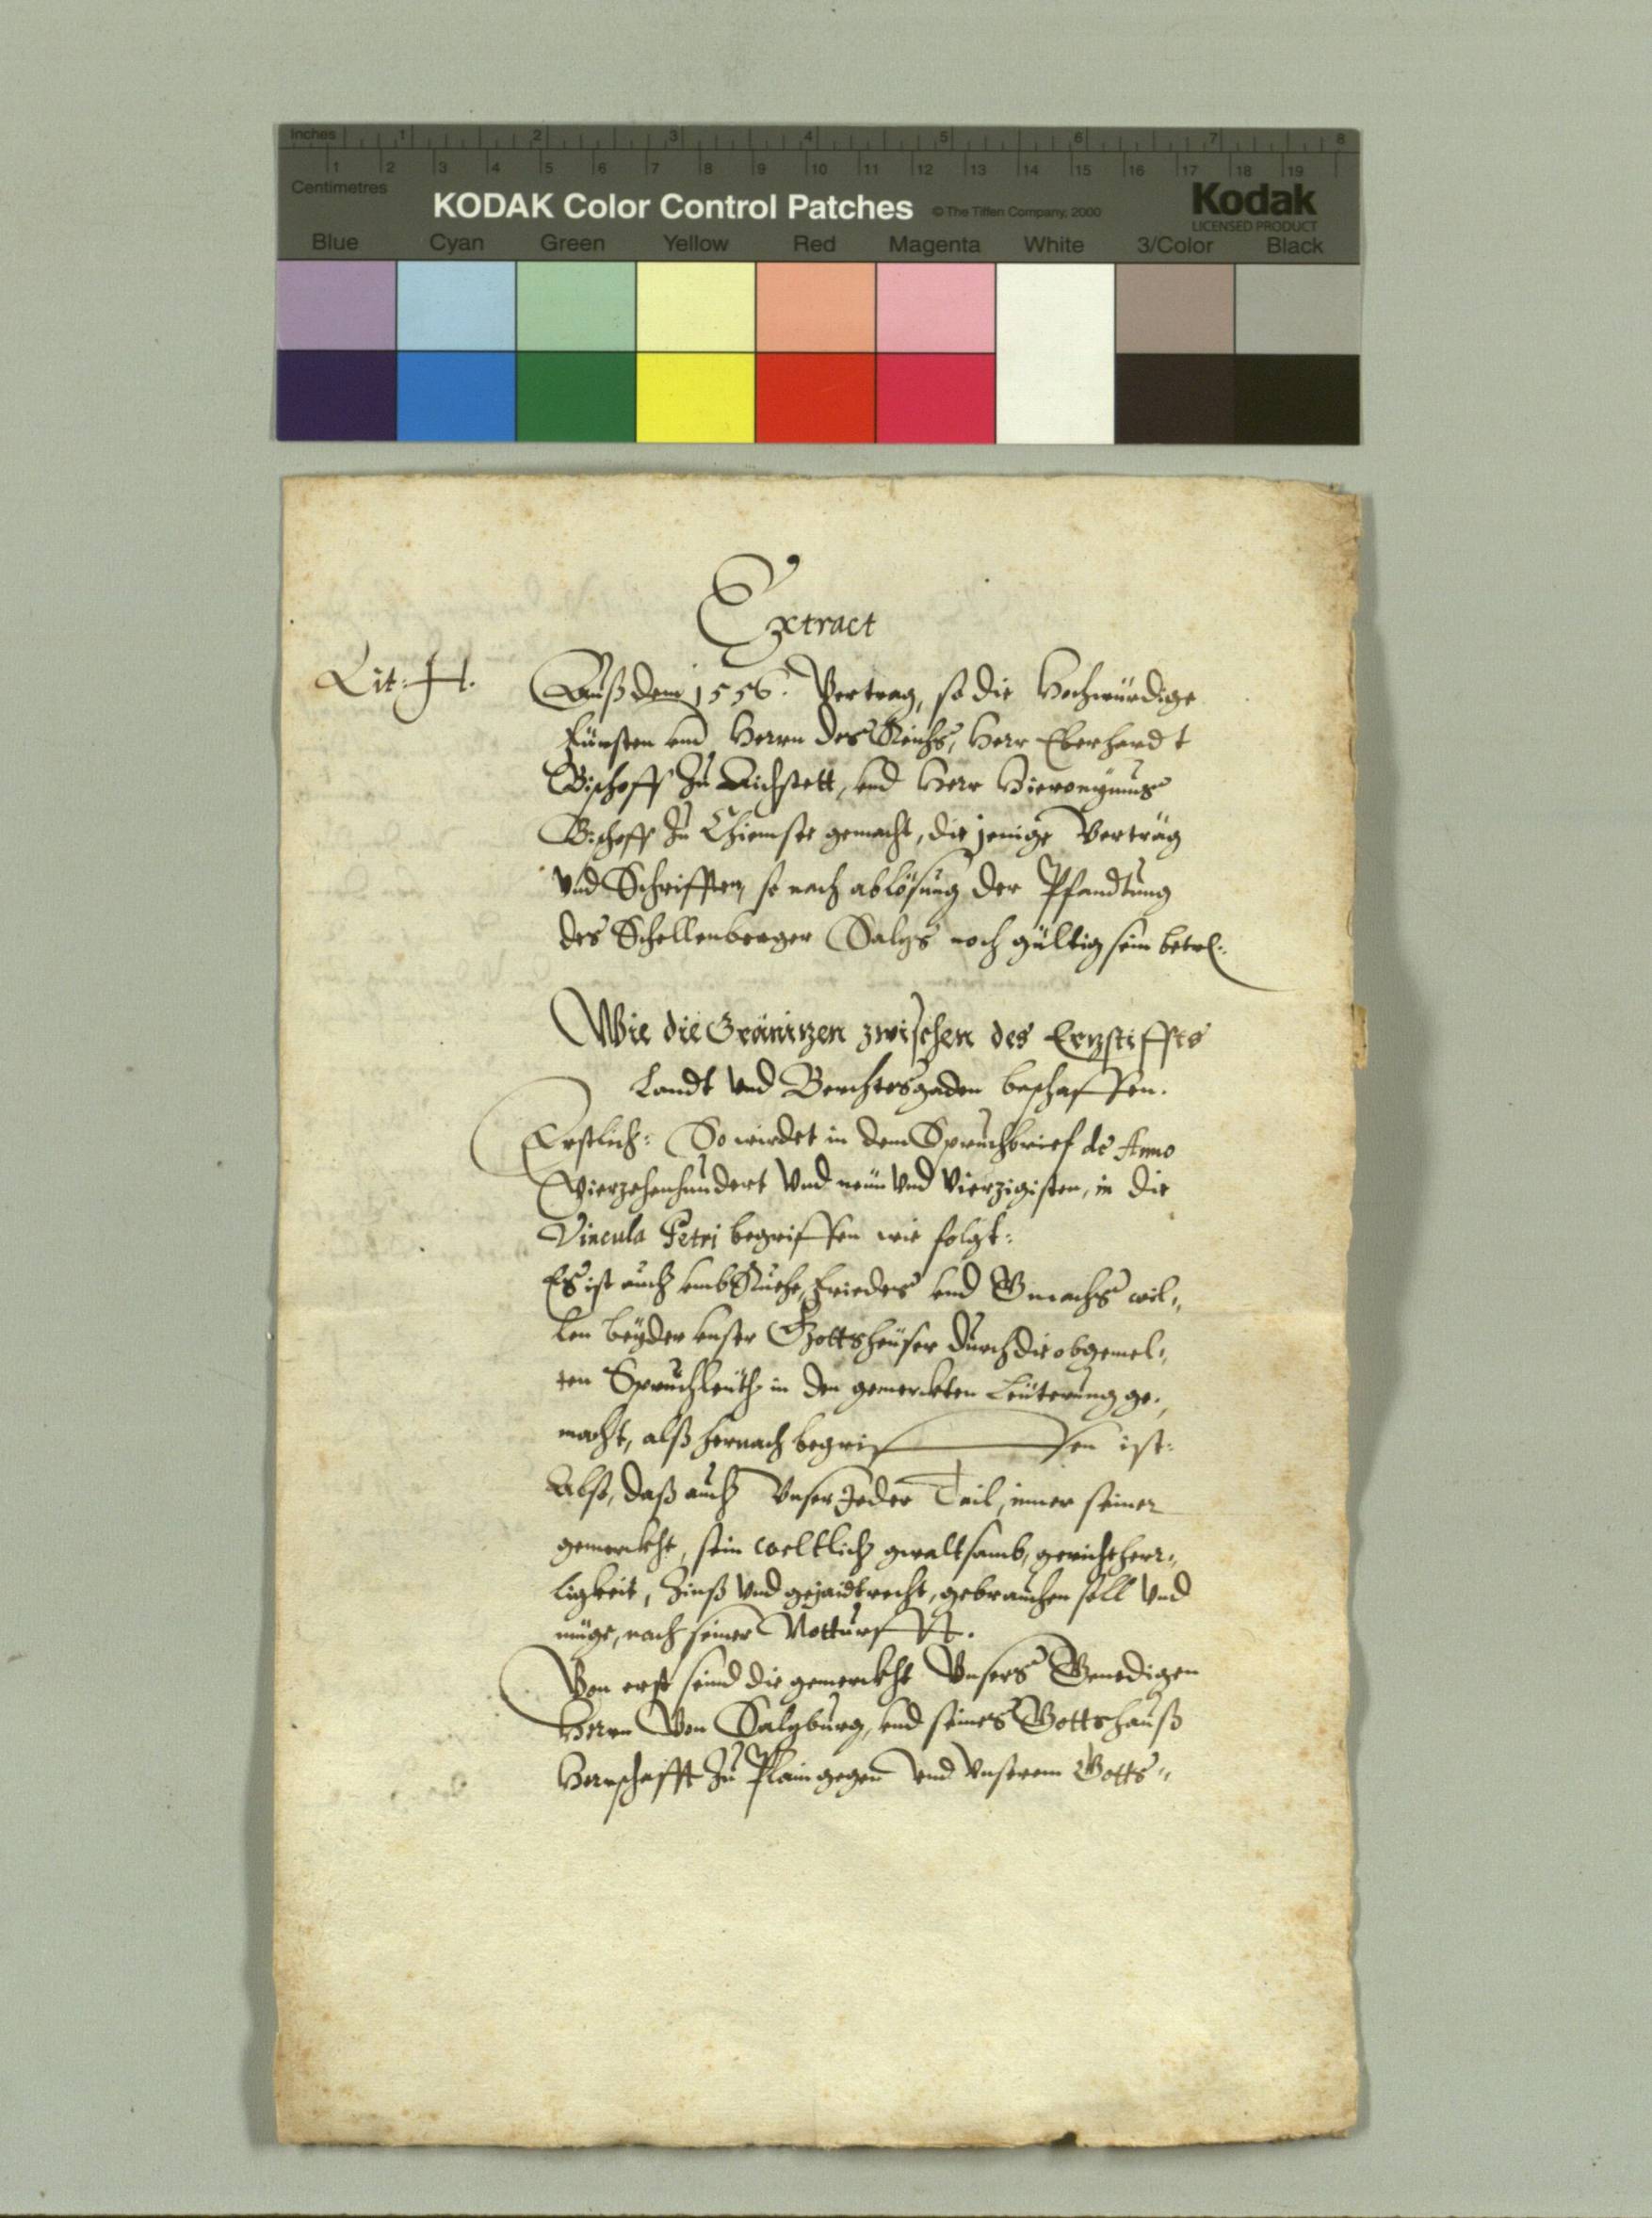 Inches 1 2 3 4 5 6 7 8
1 2 3 4 5 6 7 8 9 10 11 12 13 14 15 16 17 18 19
Centimetres
KODAK Color Control Patches © The Tiffen Company, 2000 Kodak
LICENSED PRODUCT
Blue Cyan Green Yellow Red Magenta White 3/Color Black
Extract
Lit: H.
Auß dem 1556. Vertrag, so die Hochwürdige
Fürsten und Herrn des Reichs, Herr Eberhardt
Bischoff zu Aichstett, und Herr Hieronymus
Bischoff zu Chiemsee gemacht, die jenige Verträg
und Schrifften, so nach ablösung der Pfandtung
des Schellenberger Salz noch gültig sein
Wie die Gränizen zwischen des Erzstiffts
Landt und Berchtesgaden beschaffen.
Erstlich: So wirdet in dem Spruchbrief de Anno
Vierzehenhundert und neün und Vierzigisten, in die
Vincula Petri begriffen wie folgt:
Es ist auch umb Ruehe, Frieders und Gmachs wil„
len beyder unser Gottsheüser durch die obgemel„
ten Spruchleüth in den gemerckten Leüterung ge„
macht, alß hernach begriffen ist:
Also, daß auch Unser Jeder Tail, inner seiner
gemerckht, sein weltlich gwaltsamb, gerichtherr„
ligkeit, Zinß und gejaidtrecht, gebrauchen soll und
müge, nach seiner Notturfft.
Von erst seind die gemerckht Unsers Genedigen
Herrn Von Salzburg, und seines Gottshauß
Herrschafft zu Plain gegen und Unserem Gotts„